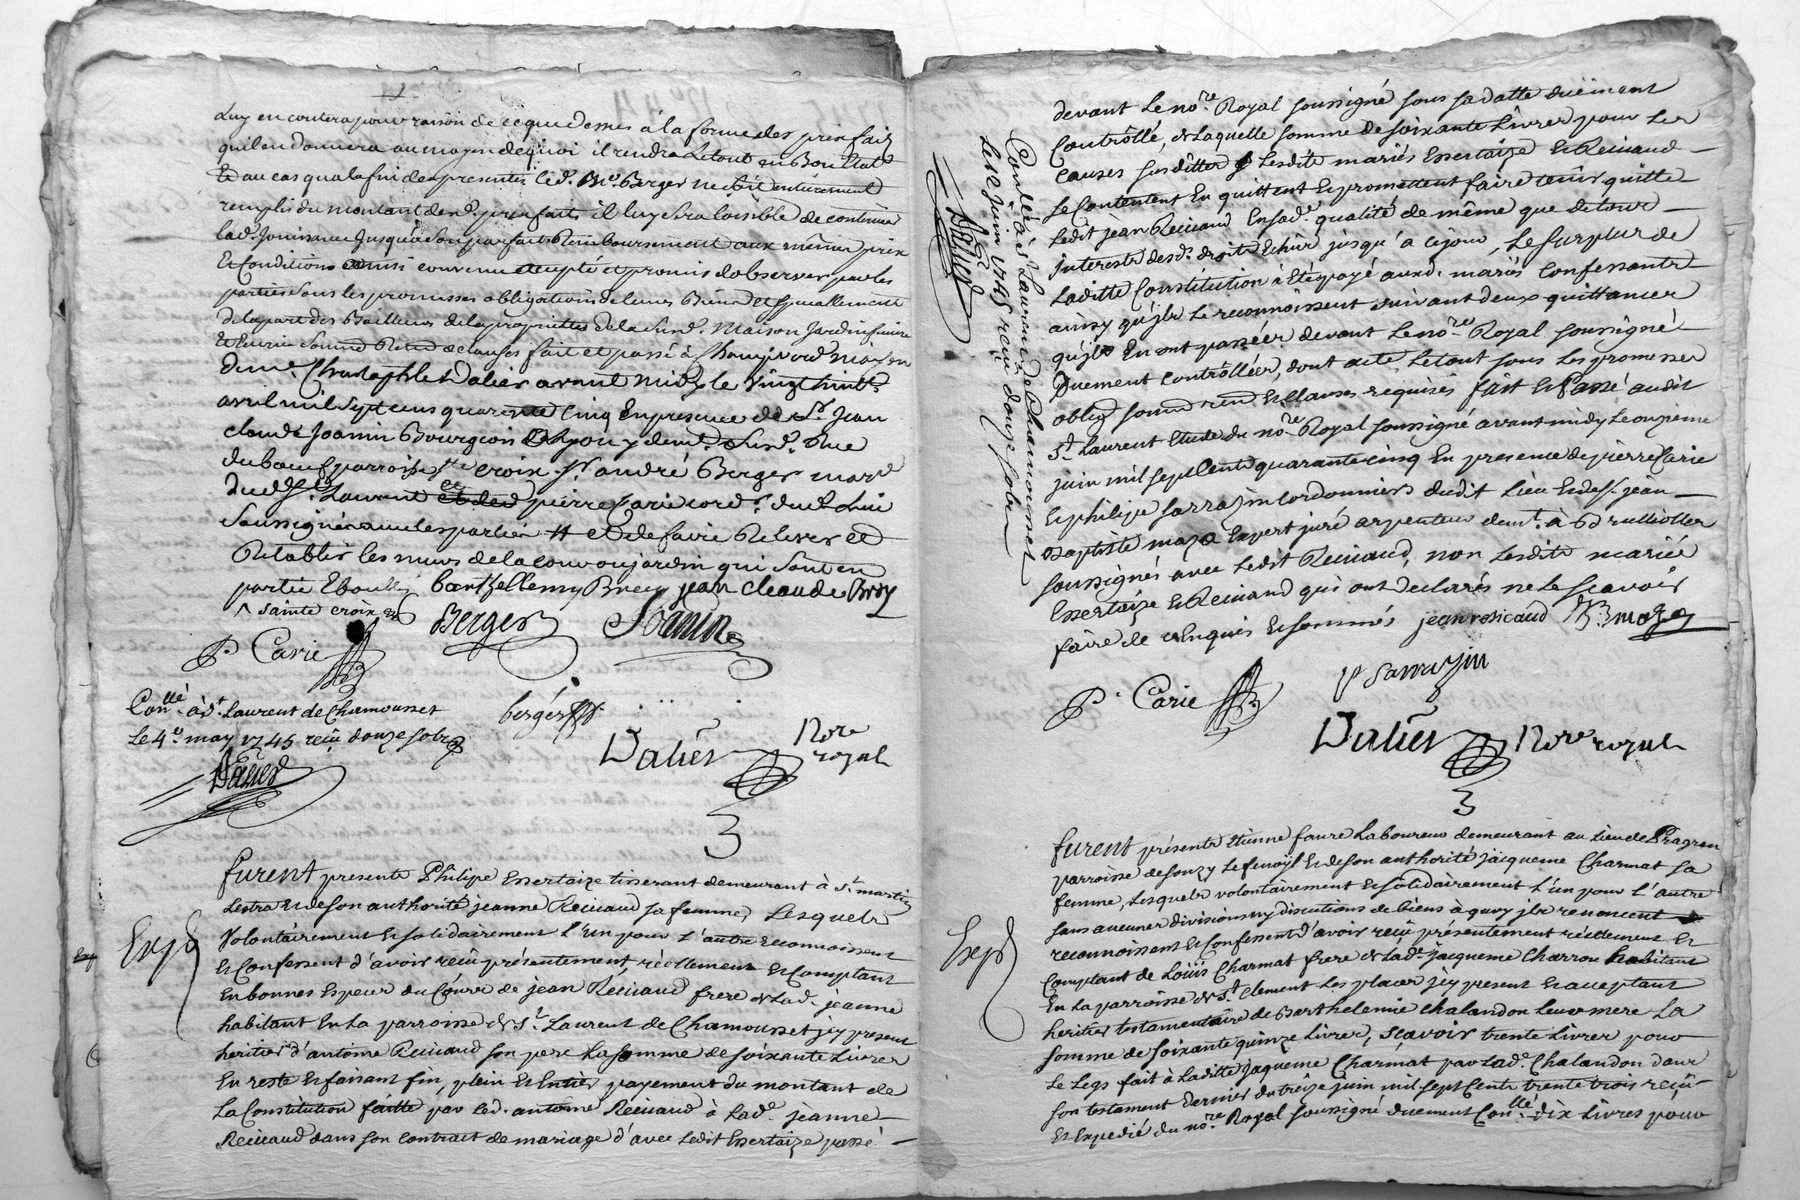 Luy en coutera pour raison de ce que dessus à la forme des prix fait
qu'il en donnera au moyen de quoi il rendra le tout en Bon Etat
Et au cas qu'a la fin des presentes led. Sr. Berger ne soit entierement
remplis du montant desd. prix faits il luy sera loisible de continuer
lad. Jouissance Jusqu'à son parfait Remboursement aux mêmes prix
Et Conditions ainsi convenu accepté et promis d'observer par les
parties sous les promesses obligations de leurs Biens et speciallement
de la part des Bailleurs de la proprietté de la susd. Maison Jardin
Et Ecurie soumis Renon & clauses fait et passé à maison
de me. Christophle Dalier avant midy le vingt huit
avril mil sept cens quarente cinq En presence de Sr. Jean
claude Joanin Bourgeois de Lyon y demt. susd. Rue
du bœuf parroisse ste croix Sr. andré Berger mard
dud. St. Laurent et ded pierre Carie cord. dud. Lieu
soussignés avec les parties # et de faire Relever et
Retablir les murs de la cour ou jardin qui sont en
partie Eboullés barthellemy Brey jean claude Brey
^ sainte croix
Berger Joanin
P. Carie
Conllé. à St. Laurent de Chamousset
Le 4e. may 1745 reçu douze sols
bergér
Dalier
Dalier Nore royal
furent presents Philipe Essertaize tisserant demeurant à St. martin
Lestra Et de son authorité jeanne Reinaud sa femme, Lesquels
Volontairement Et solidairement l'Un pour l'autre reconnoissent
Et Confessent d'avoir reçu présentement réellement Et Comptant
En bonnes Especes du Cours de jean Reinaud frere de Lad. jeanne
habitant En La parroisse de St. Laurent de Chamousset jcy present
heritier d'antoine Reinaud son pere La somme de soixante Livres
En reste Et faisant fin, plein Et Entier payement du montant de
La Constitution faitte par Led. antoine Reinaud à Lade. jeanne
Reinaud dans son contract de mariage d'avec Ledit Essertaize passé
Exp.
devant Le nore. Royal soussigné sous sa datte duëment
Controllé, de Laquelle somme de soixante Livres pour Les
causes susdittes Lesdits mariés Essertaize Et Reinaud
se Contentent En quittent Et promettent faire tenir quitte
Ledit jean Reinaud En sade. qualité de même que de tous
Interets desd. droits Echus jusqu'à cejour, Le surplus de
Laditte Constitution a Eté payé auxd. mariés Confessants
ainsy qu'jls Le reconnoissent suivant deux quittances
qu'jls En ont passées devant Le nore Royal soussigné
Duement Controllées, dont acte Le tout sous Les promesses
oblig soumd renon & clauses requises fait Et Passé audit
St. Laurent Etude du nore. Royal soussigné avant midy Le onzieme
juin mil sept Cents quarante cinq En presence de pierre Carie
Et philipe sarrazin Cordonniers dudit Lieu Et de sr. jean
Baptiste maza Expert juré arpenteur demt. à Brulliolles
soussignés avec Ledit Reinaud, non Lesdits mariés
Essertaize Et Reinaud qui ont declarés ne le scavoir
faire de ce Enquis Et sommés jean reinaud
P. Carie P Sarrazin
Dalier Nore royal
Conllé à St. Laurent de Chamousset
Le 12 juin 1745 reçu douze sols
Dalier
furent présents Etienne faure Laboureur demeurant au Lieu de Pragron
parroisse de souzy Et de son authorité jacqueme Charmat sa
femme, Lesquels volontairement Et solidairement L'un pour L'autre
sans aucunes divisions ny discutions de biens à quoy jls renoncent
reconnoissent Et Confessent d'avoir reçu présentement réellement Et
Comptant de Loüis Charmat frere de Lade. jacqueme Charmat habitant
En La parroisse de St. Clement Les places jcy present Et acceptant
heritier testamentaire de Barthelemie Chalandon Leur mere La
somme de soixante quinze Livres, scavoir trente Livres pour
Le Legs fait à Laditte jaqueme Charmat par Lade. Chalandon dans
son testament dernier du treize juin mil sept Cents trente trois reçu
Et Expedié du nore. Royal soussigné duement Conllé. dix Livres pour
Exp.